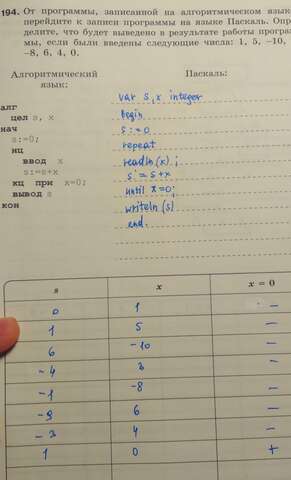 194. От программы, записанной на алгоритмическом язык
перейдите к записи программы на языке Паскаль. Опр
делите, что будет выведено в результате работы програ
мы, если были введены следующие числа: 1, 5, -10,
-8, 6, 4, 0.
Алгоритмический Паскаль:
язык:
var s, x integer
алг begin
цел s, x s := 0
нач repeat
s:=0;
нц readln(x);
ввод x s := s+x
s:=s+x until x=0;
кц при x=0; writeln(s)
вывод s end.
кон
s x x = 0
0 1 -
1 5 -
6 -10 -
-4 3 -
-1 -8 -
-9 6 -
-3 4 -
1 0 +